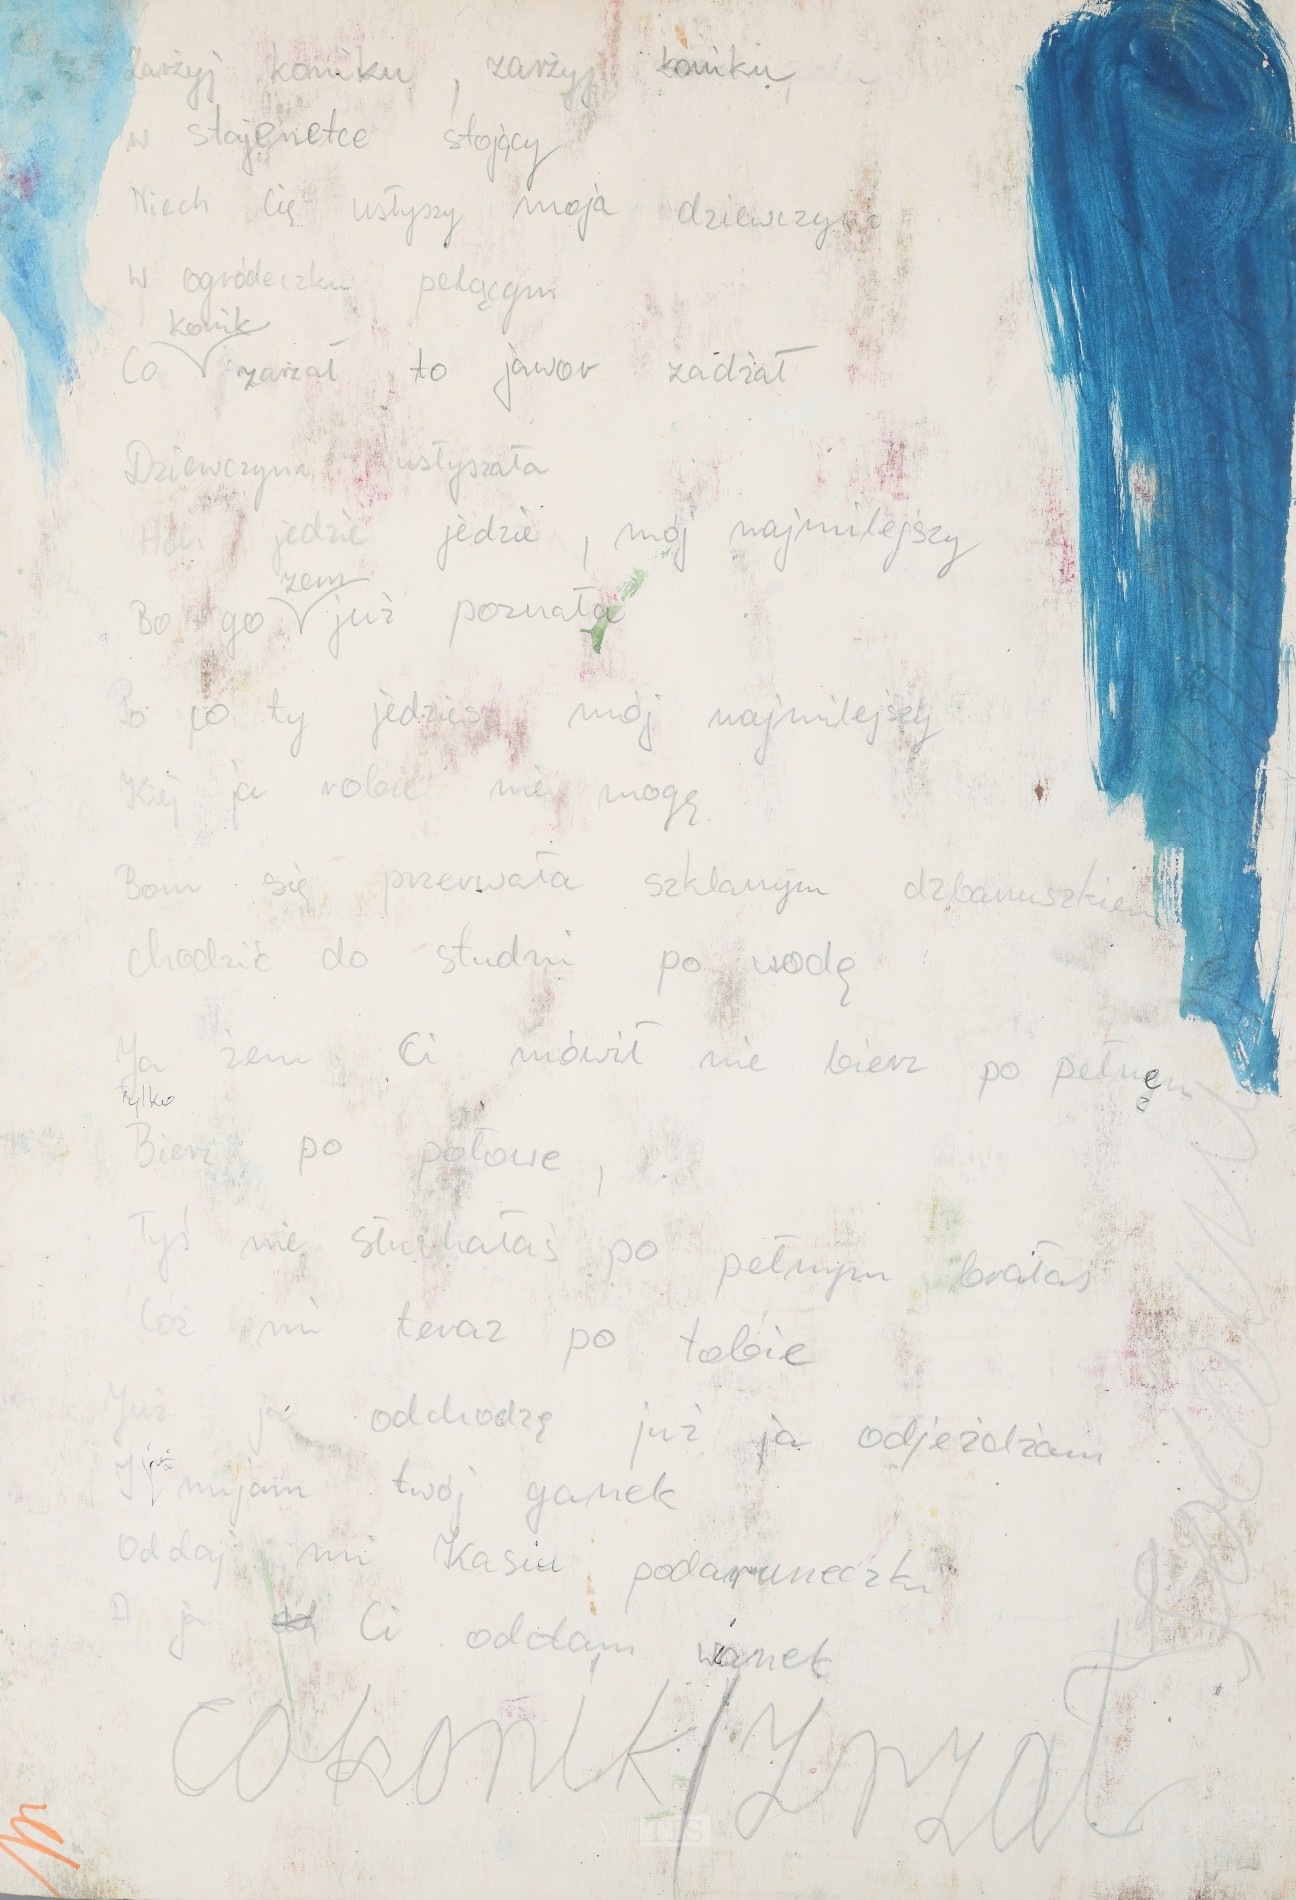 Zarżyj koniku, zarżyj koniku,
w stajenetce stojący
Niech Cię usłyszy moja dziewczyna
w ogródeczku pelącym
konik
Co zarżał to jawor zadżał
Dziewczyna usłyszała
jedzie jedzie, mój najmilejszy
żem
Bo go już poznała
Po co ty jedziesz mój najmilejszy
Kiej ja robić nie mogę
Bom się przerwała szklanym dzbanuszkiem
chodzić do studni po wodę
Ja żem Ci mówił nie bierz po pełnęm
Tylko
Bierz po połowe,
Tyś nie słuchałaś po pełnym brałaś
Cóż mi teraz po tobie
Już ja odchodzę już ja odjeżdżam
już
I mijam twój ganek
Oddaj mi Kasiu podaruneczki
A ja Ci oddam wianek
co konik / zarżał